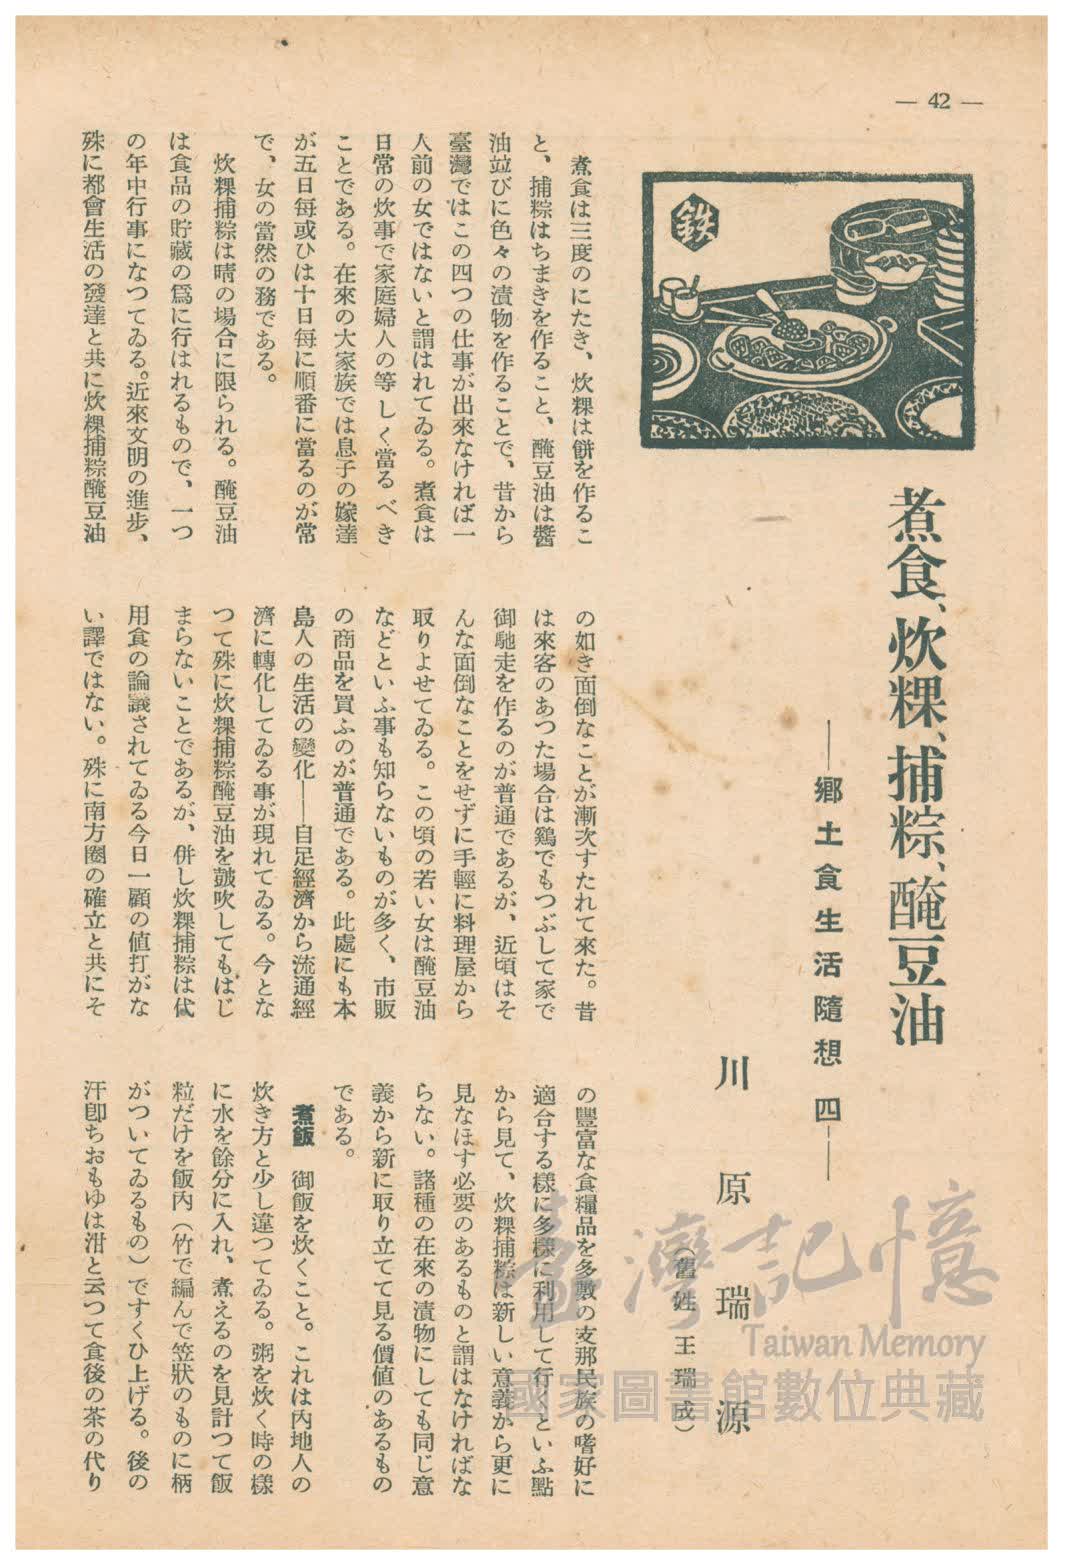 — 42 —
鉄
煮食、炊粿、捕粽、醃豆油
——鄕土食生活隨想 四——
川原瑞源
(舊姓 王瑞成)
煮食は三度のにたき、炊粿は餅を作るこ
と、捕粽はちまきを作ること、醃豆油は醬
油竝びに色々の漬物を作ることで、昔から
臺灣ではこの四つの仕事が出來なければ一
人前の女ではないと謂はれてゐる。煮食は
日常の炊事で家庭婦人の等しく當るべき
ことである。在來の大家族では息子の嫁達
が五日每或ひは十日每に順番に當るのが常
で、女の當然の務である。
炊粿捕粽は晴の場合に限られる。醃豆油
は食品の貯藏の爲に行はれるもので、一つ
の年中行事になつてゐる。近來文明の進步、
殊に都會生活の發達と共に炊粿捕粽醃豆油
の如き面倒なことが漸次すたれて來た。昔
は來客のあつた場合は鷄でもつぶして家で
御馳走を作るのが普通であるが、近頃はそ
んな面倒なことをせずに手輕に料理屋から
取りよせてゐる。この頃の若い女は醃豆油
などといふ事も知らないものが多く、市販
の商品を買ふのが普通である。此處にも本
島人の生活の變化——自足經濟から流通經
濟に轉化してゐる事が現れてゐる。今とな
つて殊に炊粿捕粽醃豆油を鼓吹してもはじ
まらないことであるが、併し炊粿捕粽は代
用食の論議されてゐる今日一顧の値打がな
い譯ではない。殊に南方圈の確立と共にそ
の豐富な食糧品を多數の支那民族の嗜好に
適合する樣に多樣に利用して行くといふ點
から見て、炊粿捕粽は新しい意義から更に
見なほす必要のあるものと謂はなければな
らない。諸種の在來の漬物にしても同じ意
義から新に取り立てて見る價値のあるもの
である。
煮飯 御飯を炊くこと。これは內地人の
炊き方と少し違つてゐる。粥を炊く時の樣
に水を餘分に入れ、煮えるのを見計つて飯
粒だけを飯內(竹で編んで笠狀のものに柄
がついてゐるもの)ですくひ上げる。後の
汗卽ちおもゆは泔と云つて食後の茶の代り
臺灣記憶
Taiwan Memory
國家圖書館數位典藏